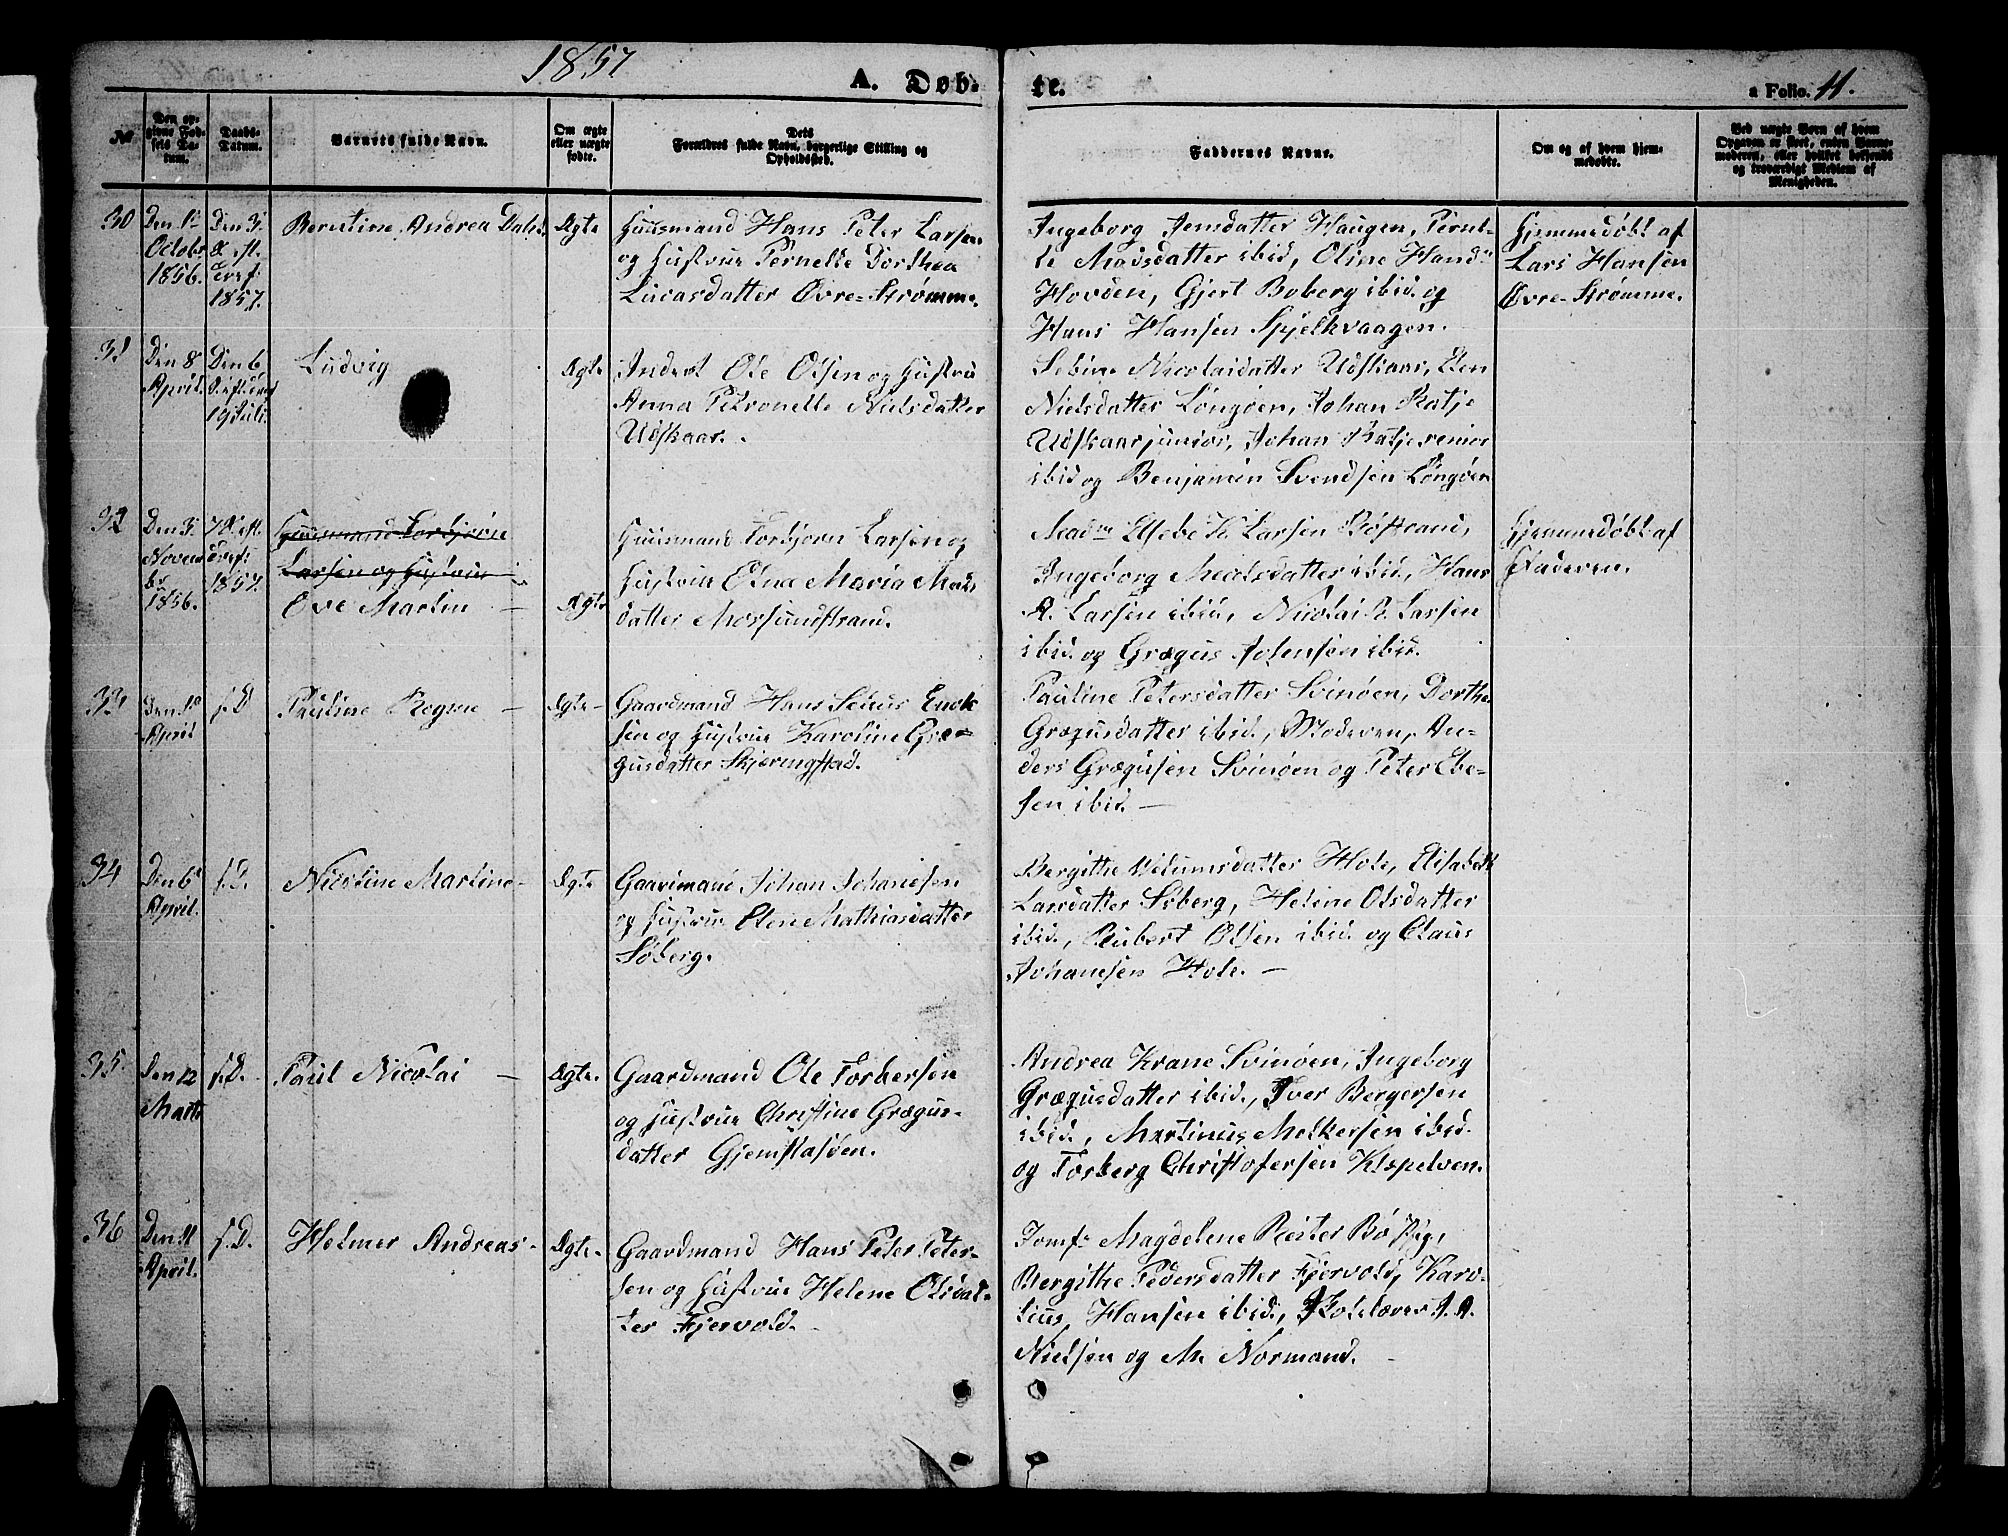 1857
A. Døb-
te.
a Folio. 11.
No
Den op-
givne Fød-
sels Da-
tum.
Daabs-
Datum.
Barnets fulde Navn.
Om ægte
eller uægte
fødte.
Dets
Forældres fulde Navn, borgerlige Stilling og
Opholdssted.
Faddernes Navne.
Om og af hvem hjem-
medøbte.
Ved uægte Børn af hvem
Opgaven er skeet, enten Barne-
moderen, eller hvilket bekjendt
og troværdigt Medlem af
Menigheden.
30
Den 1ste
Octobr
1856.
Den 3.
1857.
Berntine Andrea Dahl.
Ægte
Huusmand Hans Peter Larsen
og Hustrue Pernelle Dorthea
Lucasdatter Øvre-Strømme.
Ingeborg Jensdatter Haugen, Pernel-
le Madsdatter ibid, Oline Hansd.
Hovden, Gjert Boberg ibid. og
Hans Hansen Spjelkvaagen.
Hjemmedøbt af
Lars Hansen
Øvre-Strømme.
31
Den 8
April.
Den 6
19 Juli.
Ludvig
Ægte
Inderst Ole Olsen og Hustru
Anna Petronelle Nielsdatter
Udskaar.
Sebine Nicolaisdatter Udskaar, Elen
Nielsdatter Longøen, Johan Ratje
Udskaar junior, Johan Ratje senior
ibid og Benjamin Svendsen Longøen
32
Den 3.
Novem
br
1856.
1857.
Huusmand Torbjørn
Larsen og Hustrue
Ove Martin -
Ægte
Huusmand Torbjørn Larsen og
Hustrue Elna Maria Mads-
datter Morsundstrand.
Mad. Elsebe K. Larsen
Ingeborg Madsdatter ibid., Hans
A. Larsen ibid, Nicolai B. Larsen
ibid. og Grægus Johnsen ibid.
Hjemmedøbt af
Faderen.
33
Den 18
April
s. D.
Pauline Rogine -
Ægte -
Gaardmand Hans Severus Enok-
sen og Hustrue Karoline Græ-
gusdatter Skjeringstad.
Pauline Petersdatter Svinøen, Dorthe
Grægusdatter ibid., Moderen, An-
ders Grægusen Svinøen og Peter Ebe-
sen ibid. -
34
Den 6
April.
s. D.
Nicoline Martine -
Ægte
Gaardmand Johan Johansen
og Hustrue Elen Mathiasdatter
Søberg.
Bergithe Vilumsdatter Hole, Elisabeth
Larsdatter Søberg, Helene Olsdatter
ibid., Rubert Olsen ibid. og Claus
Johansen Hole. -
35
Den 12
Marts
s. D.
Paul Nicolai -
Ægte.
Gaardmand Ole Torbersen
og Hustrue Christine Grægus-
datter Gjemstasøen.
Andrea Krane Svinøen, Ingeborg
Grægusdatter ibid., Iver Bergersen
ibid., Martinus Melkersen ibid.
og Torberg Christofersen Kispelven.
36
Den 11
April.
s. D.
Holmer Andreas -
Ægte -
Gaardmand Hans Peter Peter-
sen og Hustrue Helene Olsdat-
ter Fjervold. -
Jomf. Magdelene Rister Bø Pstg,
Bergithe Pedersdatter Fjervold, Karo-
lius Hansen ibid., Skolelærer A. A.
Nielsen og M. Normand. -